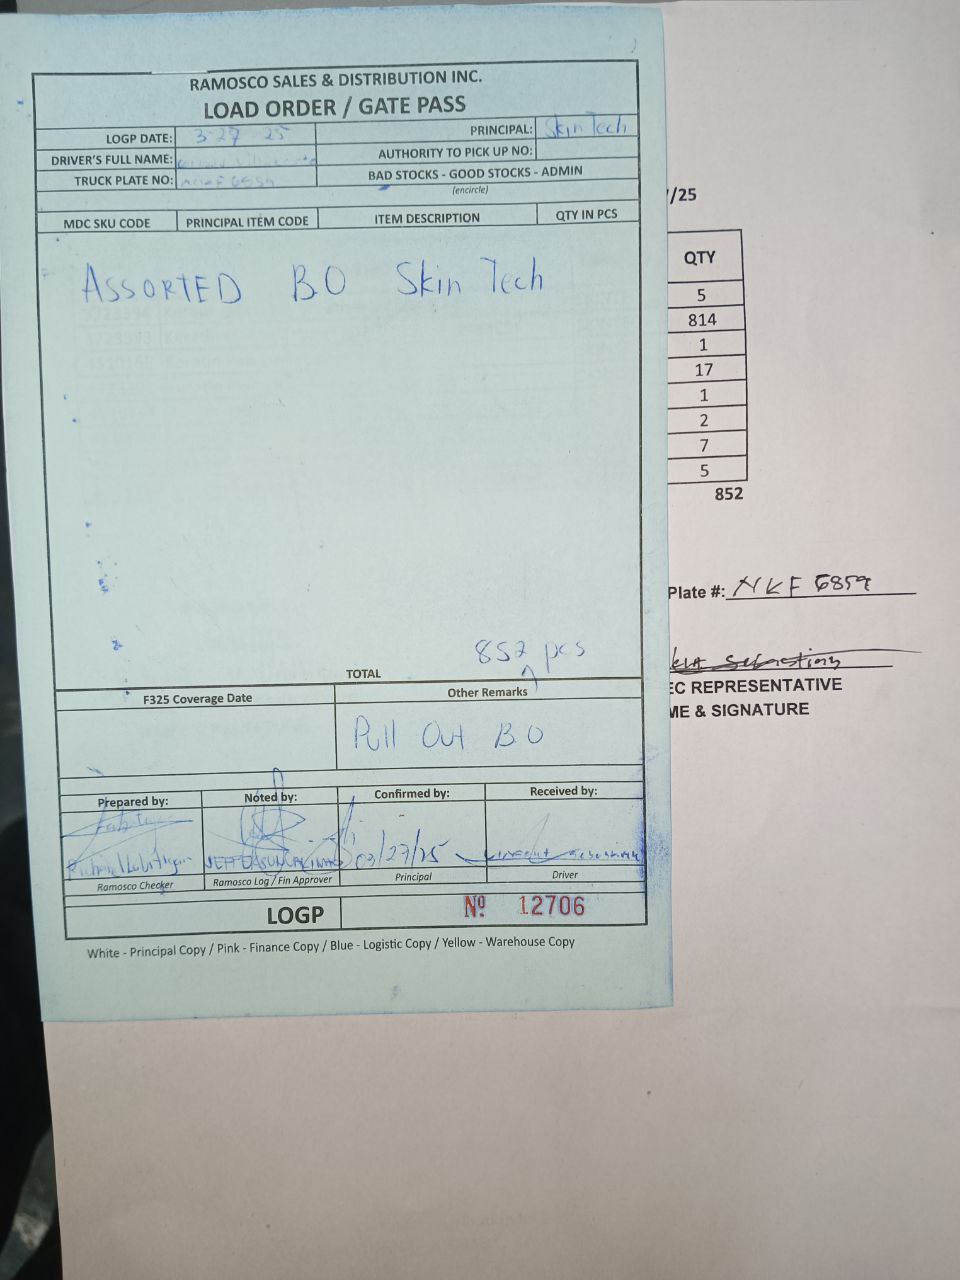 RAMOSCO SALES & DISTRIBUTION INC.
LOAD ORDER / GATE PASS
LOGP DATE: 3-27-25
PRINCIPAL: Skin Tech
DRIVER'S FULL NAME:
AUTHORITY TO PICK UP NO:
TRUCK PLATE NO: NKF 6859
BAD STOCKS - GOOD STOCKS - ADMIN
(encircle)
MDC SKU CODE PRINCIPAL ITEM CODE ITEM DESCRIPTION QTY IN PCS
ASSORTED BO Skin Tech
TOTAL 852 pcs
F325 Coverage Date Other Remarks
Pull Out BO
Prepared by: Noted by: Confirmed by: Received by:
03/27/25
Ramosco Checker Ramosco Log / Fin Approver Principal Driver
LOGP Nº 12706
White - Principal Copy / Pink - Finance Copy / Blue - Logistic Copy / Yellow - Warehouse Copy
/25
QTY
5
814
1
17
1
2
7
5
852
Plate #: NKF 6859
EC REPRESENTATIVE
ME & SIGNATURE